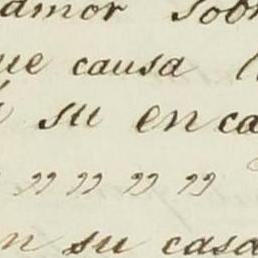 amor sobr
ue causa l
su en ca
" " " "
n su casa